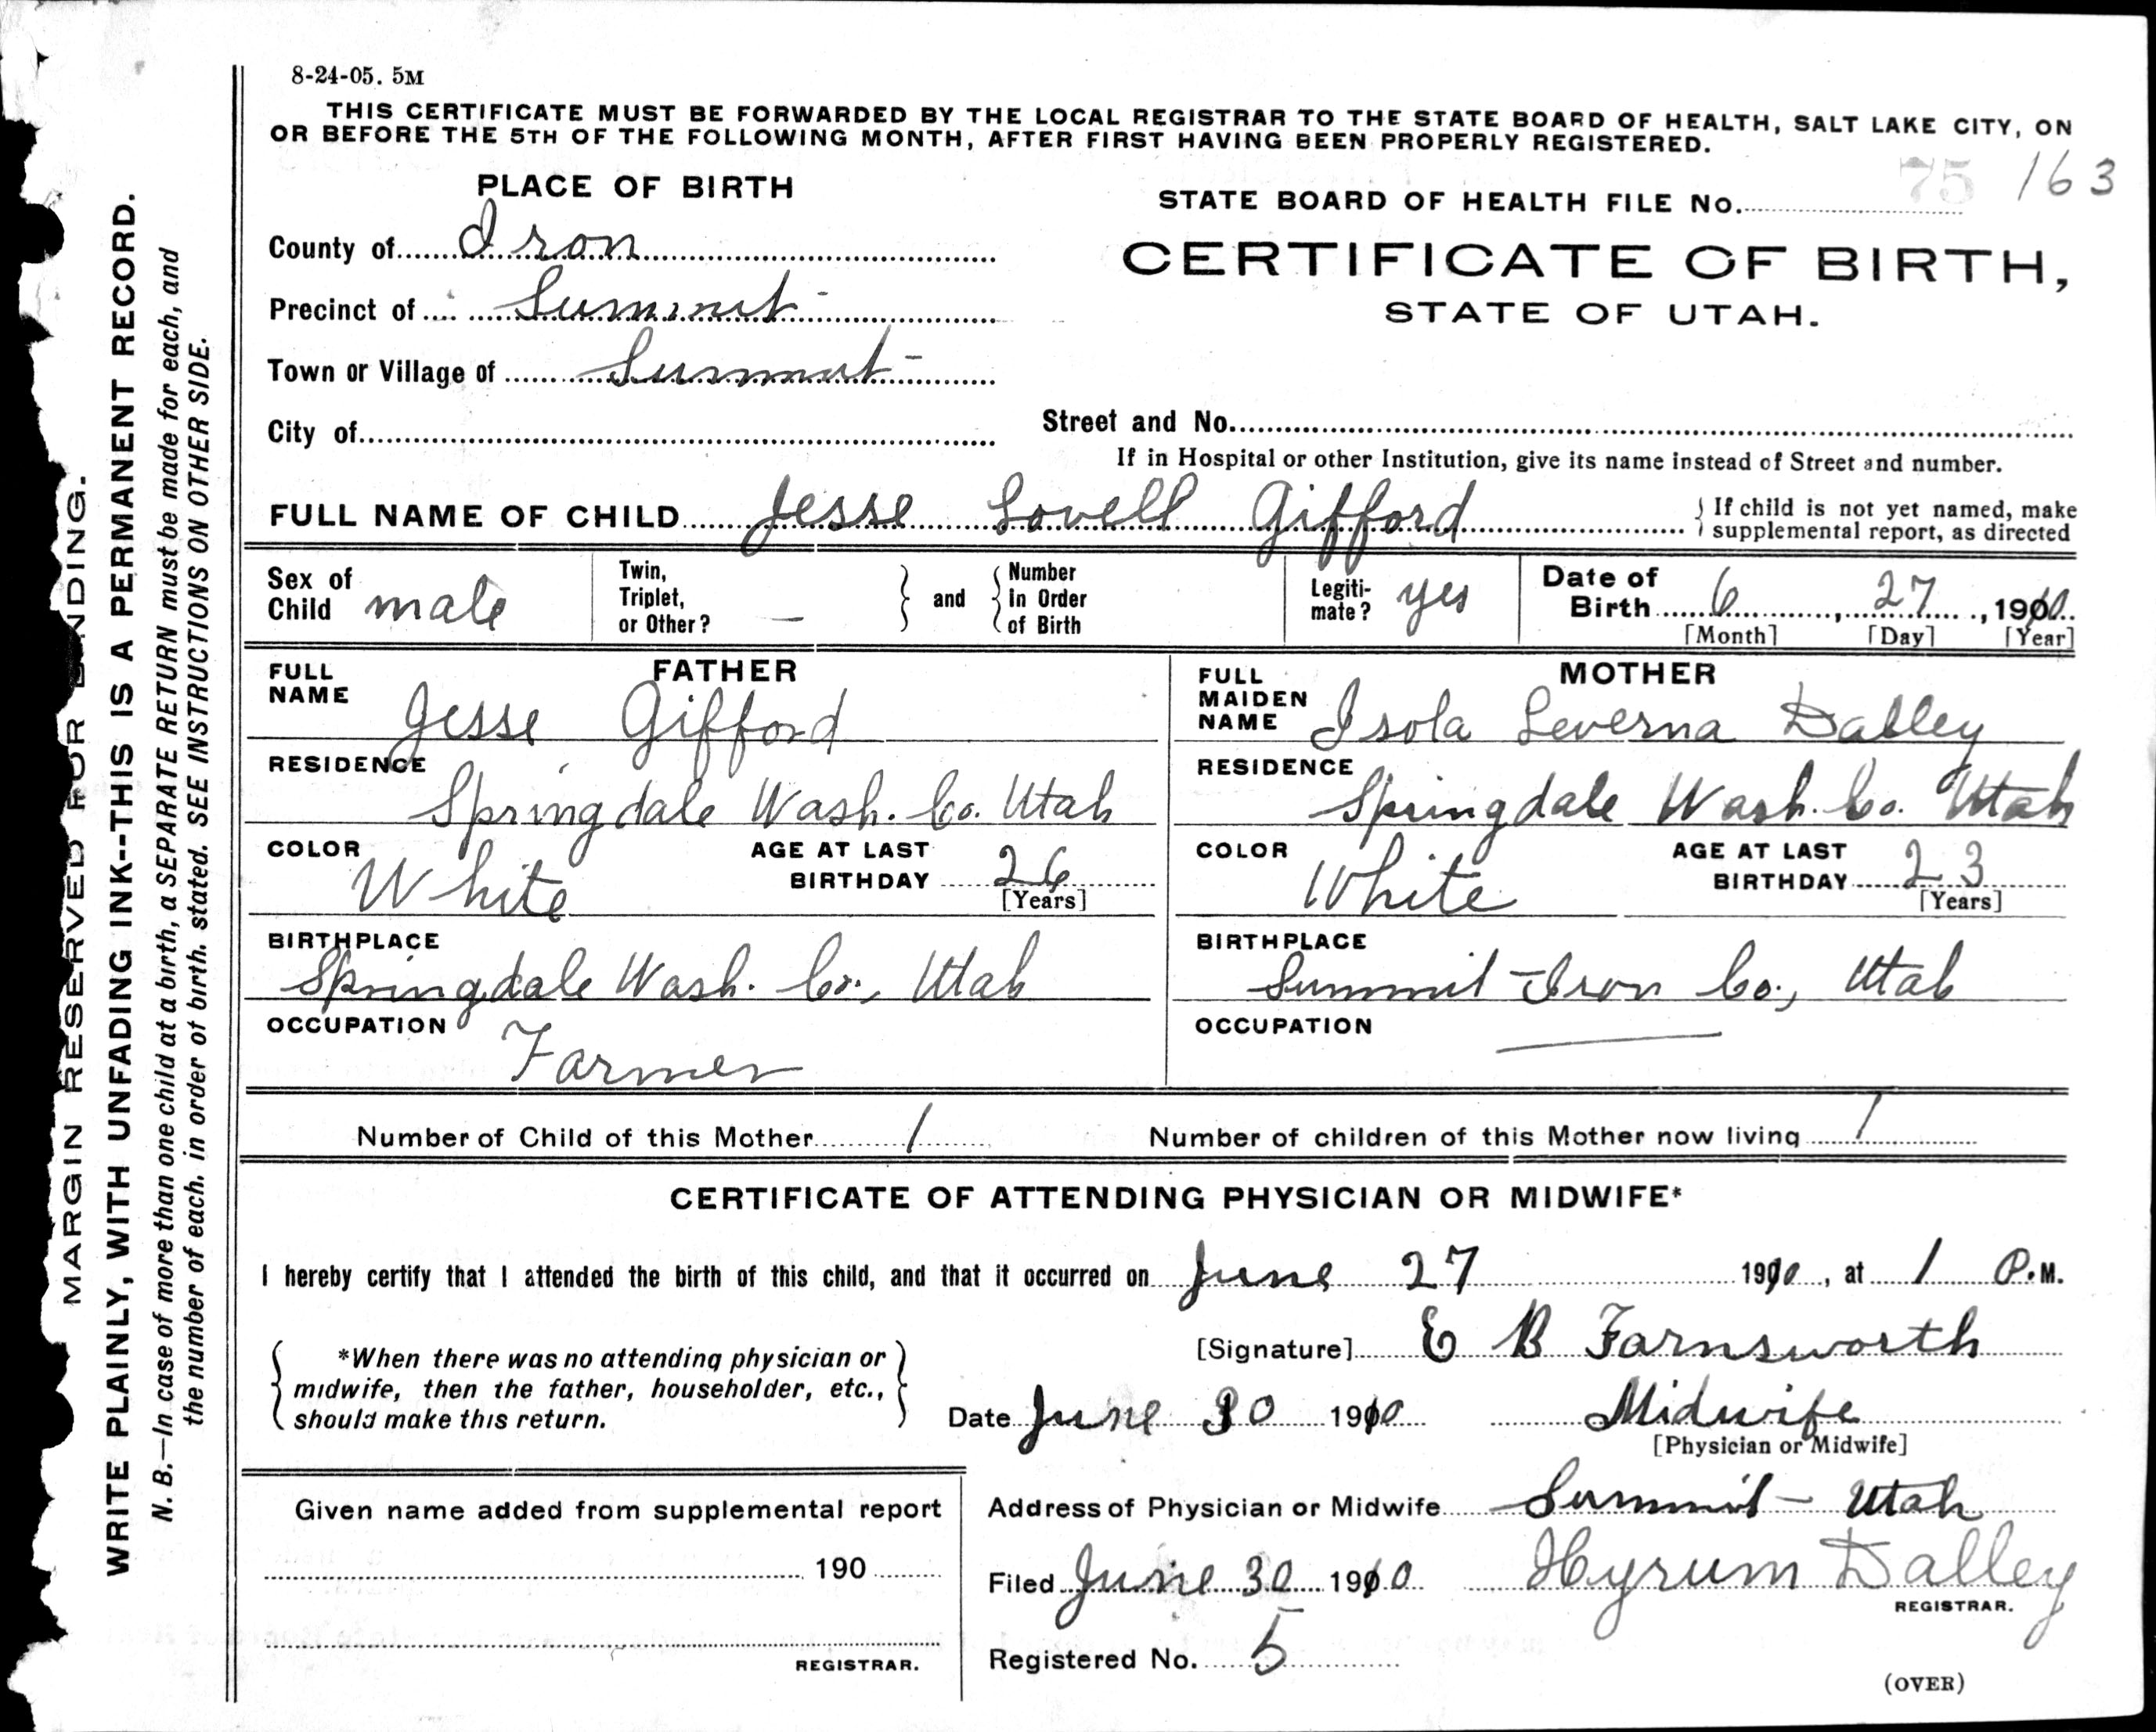 8-24-05. 5M
THIS CERTIFICATE MUST BE FORWARDED BY THE LOCAL REGISTRAR TO THE STATE BOARD OF HEALTH, SALT LAKE CITY, ON
OR BEFORE THE 5TH OF THE FOLLOWING MONTH, AFTER FIRST HAVING BEEN PROPERLY REGISTERED.
75 163
PLACE OF BIRTH
STATE BOARD OF HEALTH FILE No.
County of Iron
CERTIFICATE OF BIRTH,
Precinct of Summit
STATE OF UTAH.
Town or Village of Summit
City of
Street and No.
If in Hospital or other Institution, give its name instead of Street and number.
FULL NAME OF CHILD Jesse Lovell Gifford
If child is not yet named, make
supplemental report, as directed
Sex of
Child male
Twin,
Triplet,
or Other? —
and
Number
in Order
of Birth
Legiti-
mate? yes
Date of
Birth 6, 27, 1910
[Month] [Day] [Year]
FATHER
FULL
NAME
Jesse Gifford
RESIDENCE
Springdale Wash. Co. Utah
COLOR
White
AGE AT LAST
BIRTHDAY 26
[Years]
BIRTHPLACE
Springdale Wash. Co., Utah
OCCUPATION
Farmer
MOTHER
FULL
MAIDEN
NAME Isola Leverna Dalley
RESIDENCE
Springdale Wash. Co. Utah
COLOR
White
AGE AT LAST
BIRTHDAY 23
[Years]
BIRTHPLACE
Summit Iron Co., Utah
OCCUPATION
Number of Child of this Mother 1
Number of children of this Mother now living 1
CERTIFICATE OF ATTENDING PHYSICIAN OR MIDWIFE*
I hereby certify that I attended the birth of this child, and that it occurred on June 27 1910, at 1 P.M.
*When there was no attending physician or
midwife, then the father, householder, etc.,
should make this return.
[Signature] E B Farnsworth
Date June 30 1910 Midwife
[Physician or Midwife]
Given name added from supplemental report
190
REGISTRAR.
Address of Physician or Midwife Summit - Utah
Filed June 30 1910 Hyrum Dalley
REGISTRAR.
Registered No. 5
(OVER)
MARGIN RESERVED FOR BINDING.
WRITE PLAINLY, WITH UNFADING INK--THIS IS A PERMANENT RECORD.
N. B.—In case of more than one child at a birth, a SEPARATE RETURN must be made for each, and
the number of each, in order of birth. stated. SEE INSTRUCTIONS ON OTHER SIDE.